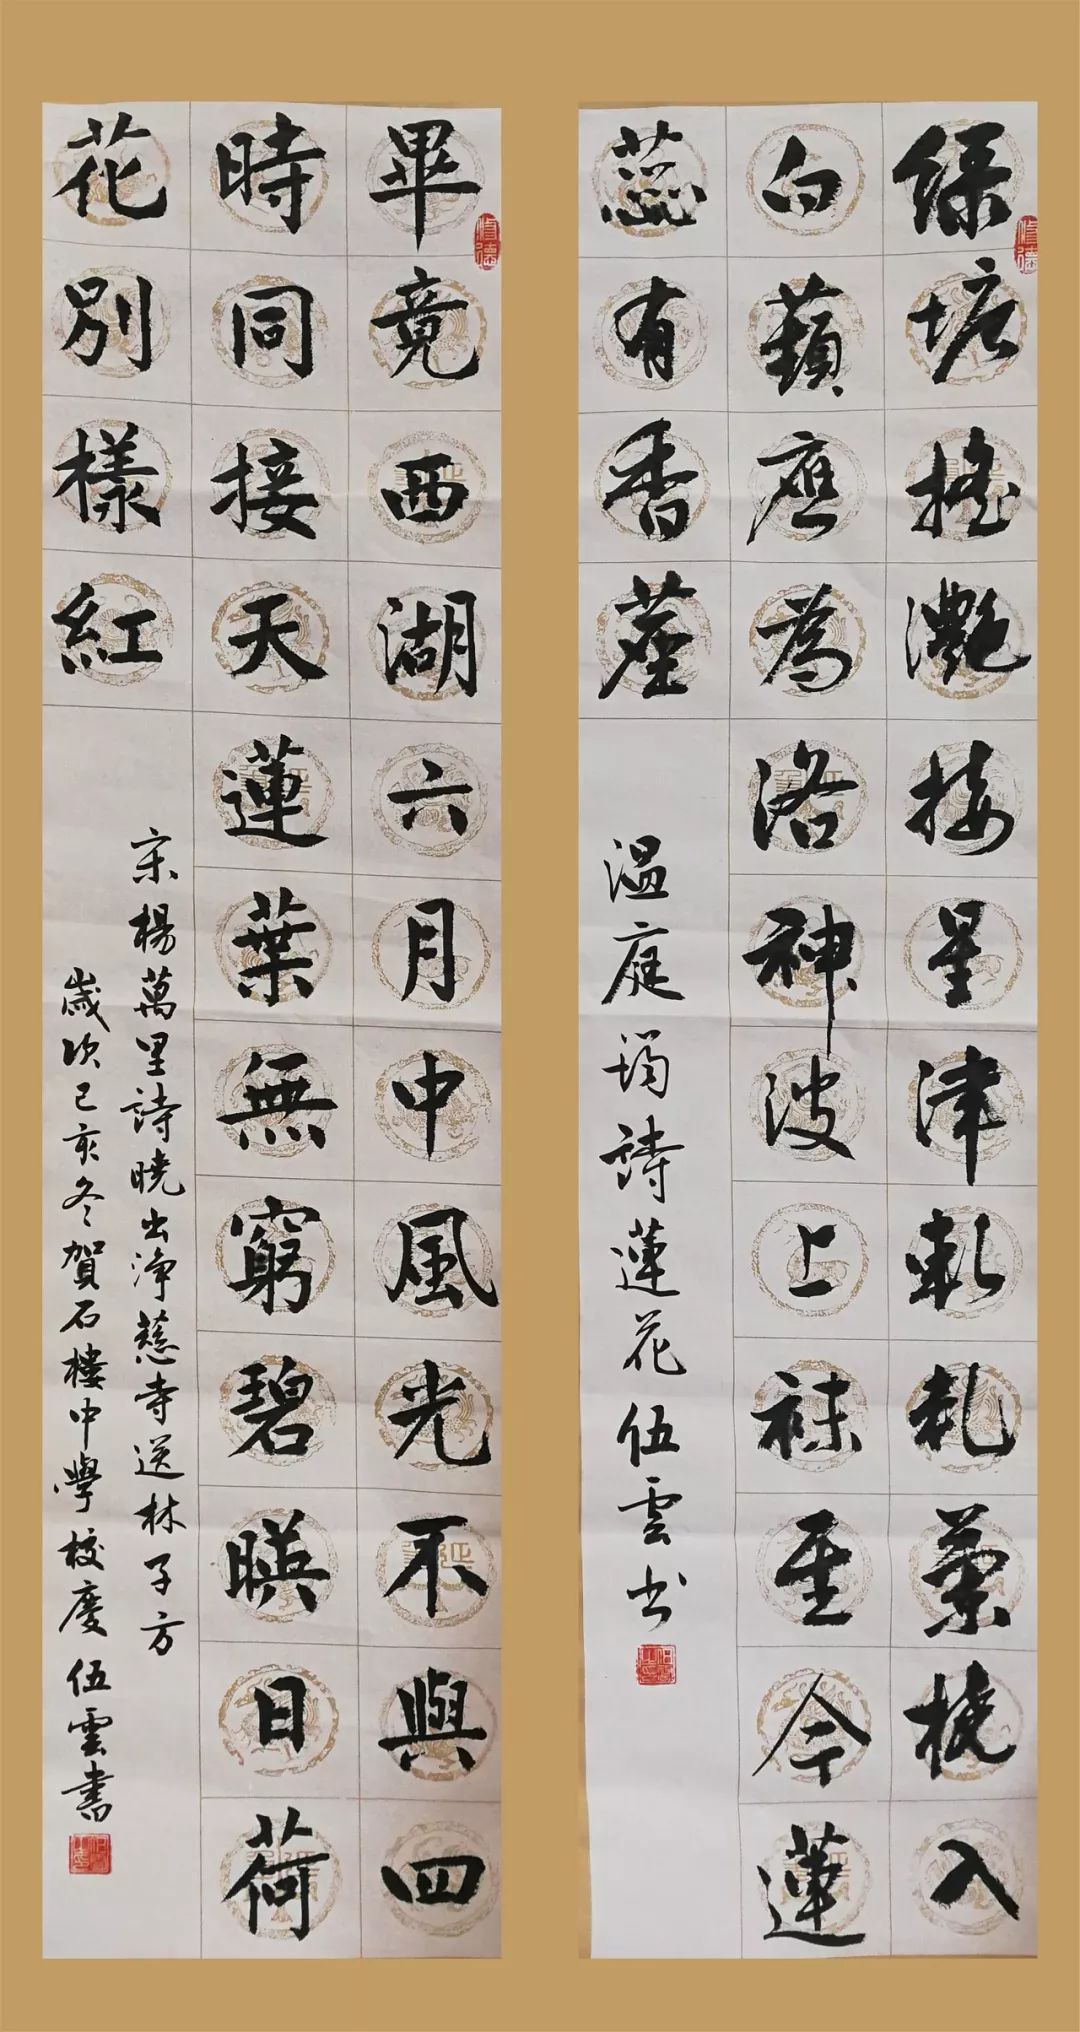 修德
綠塘搖灩接星津軋轧蘭橈入
白蘋應為洛神波上襪至今蓮
蕊有香塵
温庭筠詩蓮花 伍雲书
修德
畢竟西湖六月中風光不與四
時同接天蓮葉無窮碧暎日荷
花別樣紅
宋楊萬里詩曉出浄慈寺送林子方
歲次己亥冬賀石樓中學校慶 伍雲書